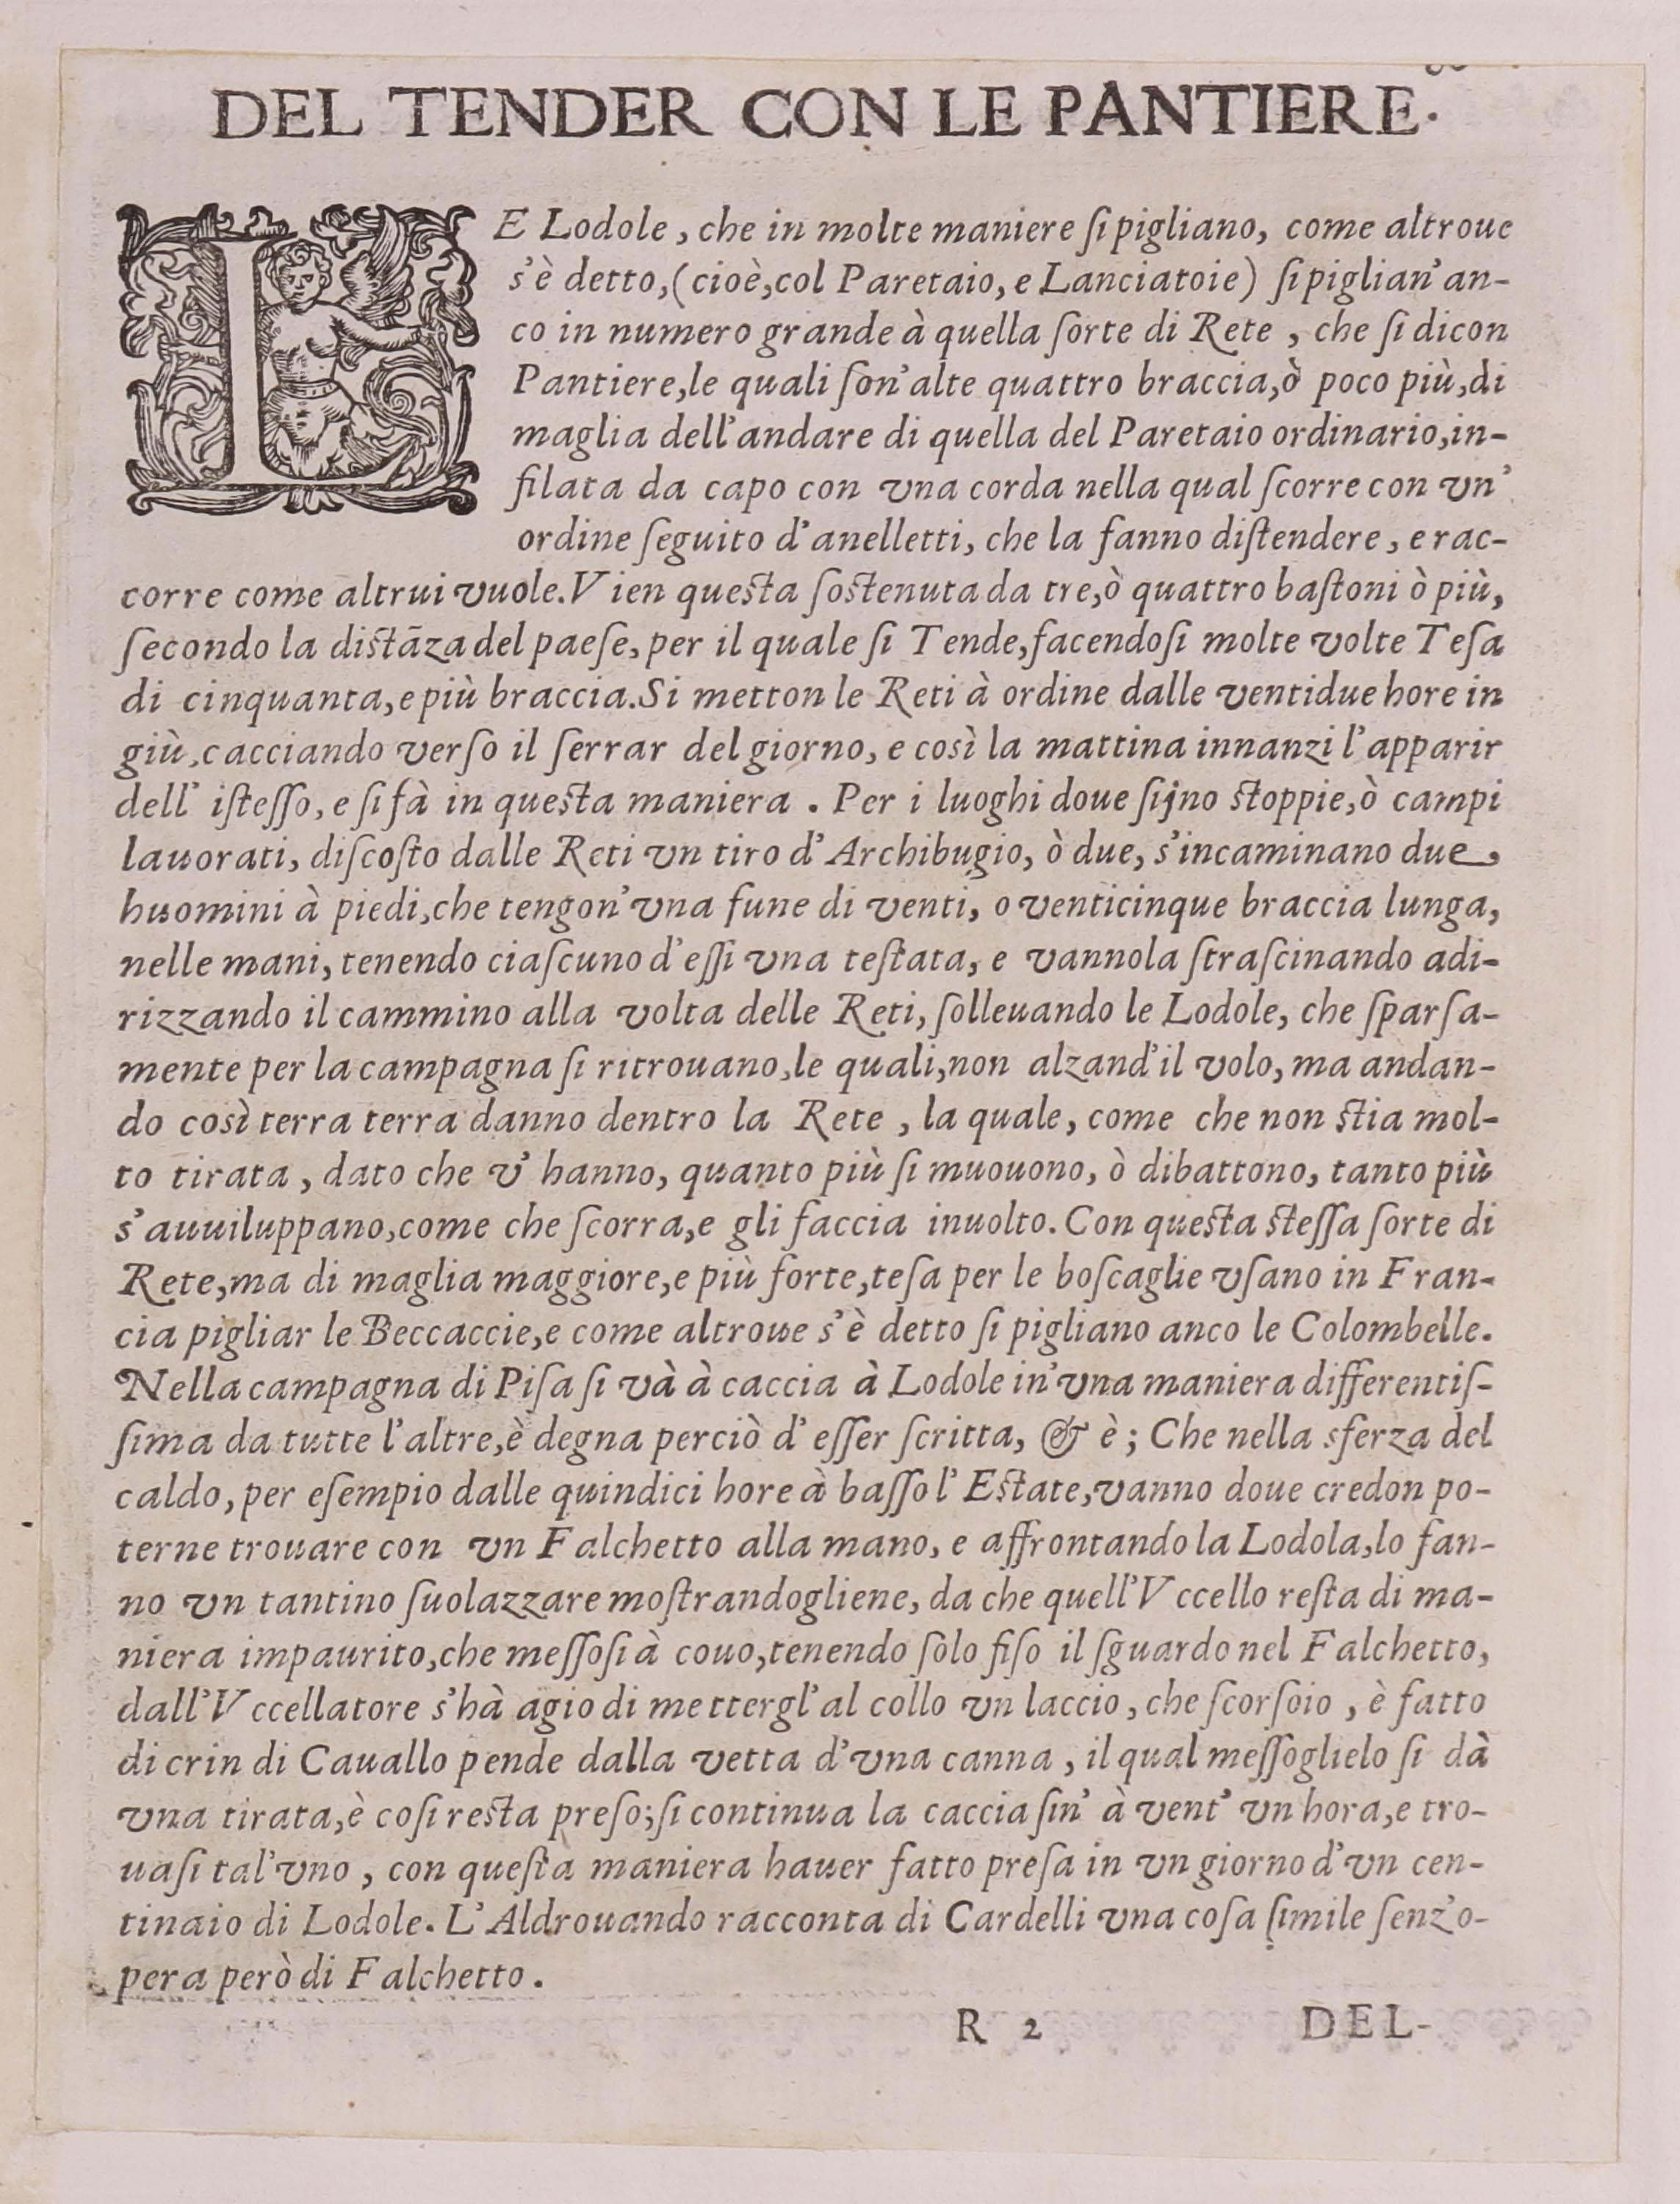 DEL TENDER CON LE PANTIERE.
LE Lodole, che in molte maniere ſi pigliano, come altroue
s'è detto, (cioè, col Paretaio, e Lanciatoie) ſi piglian' an-
co in numero grande à quella ſorte di Rete, che ſi dicon
Pantiere, le quali ſon' alte quattro braccia, ò poco più, di
maglia dell'andare di quella del Paretaio ordinario, in-
filata da capo con vna corda nella qual ſcorre con vn'
ordine ſeguito d'anelletti, che la fanno diſtendere, e rac-
corre come altrui vuole. Vien queſta ſoſtenuta da tre, ò quattro baſtoni ò più,
ſecondo la diſtāza del paeſe, per il quale ſi Tende, facendoſi molte volte Teſa
di cinquanta, e più braccia. Si metton le Reti à ordine dalle ventidue hore in
giù, cacciando verſo il ſerrar del giorno, e così la mattina innanzi l'apparir
dell' iſteſſo, e ſi fà in queſta maniera. Per i luoghi doue ſijno ſtoppie, ò campi
lauorati, diſcoſto dalle Reti vn tiro d'Archibugio, ò due, s'incaminano due,
huomini à piedi, che tengon' vna fune di venti, o venticinque braccia lunga,
nelle mani, tenendo ciaſcuno d'eſſi vna teſtata, e vannola ſtraſcinando adi-
rizzando il cammino alla volta delle Reti, ſolleuando le Lodole, che ſparſa-
mente per la campagna ſi ritrouano, le quali, non alzand' il volo, ma andan-
do così terra terra danno dentro la Rete, la quale, come che non ſtia mol-
to tirata, dato che v' hanno, quanto più ſi muouono, ò dibattono, tanto più
s'auuiluppano, come che ſcorra, e gli faccia inuolto. Con queſta ſteſſa ſorte di
Rete, ma di maglia maggiore, e più forte, teſa per le boſcaglie vſano in Fran-
cia pigliar le Beccaccie, e come altroue s'è detto ſi pigliano anco le Colombelle.
Nella campagna di Piſa ſi và à caccia à Lodole in' vna maniera differentiſ-
ſima da tutte l'altre, è degna perciò d' eſſer ſcritta, & è; Che nella sferza del
caldo, per eſempio dalle quindici hore à baſſo l' Eſtate, vanno doue credon po-
terne trouare con vn Falchetto alla mano, e affrontando la Lodola, lo fan-
no vn tantino ſuolazzare moſtrandogliene, da che quell'Vccello reſta di ma-
niera impaurito, che meſſoſi à couo, tenendo ſolo fiſo il ſguardo nel Falchetto,
dall'Vccellatore s'hà agio di mettergl' al collo vn laccio, che ſcorſoio, è fatto
di crin di Cauallo pende dalla vetta d'vna canna, il qual meſſoglielo ſi dà
vna tirata, è coſi reſta preſo; ſi continua la caccia ſin' à vent' vn hora, e tro-
uaſi tal'vno, con queſta maniera hauer fatto preſa in vn giorno d'vn cen-
tinaio di Lodole. L'Aldrouando racconta di Cardelli vna coſa ſimile ſenz'o-
pera però di Falchetto.
R 2 DEL-